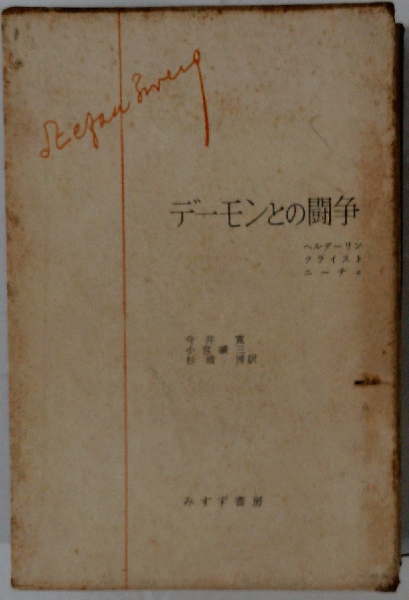 Stefan Zweig
デーモンとの闘争
ヘルダーリン
クライスト
ニーチェ
今井寛
小宮曠三
杉浦博訳
みすず書房